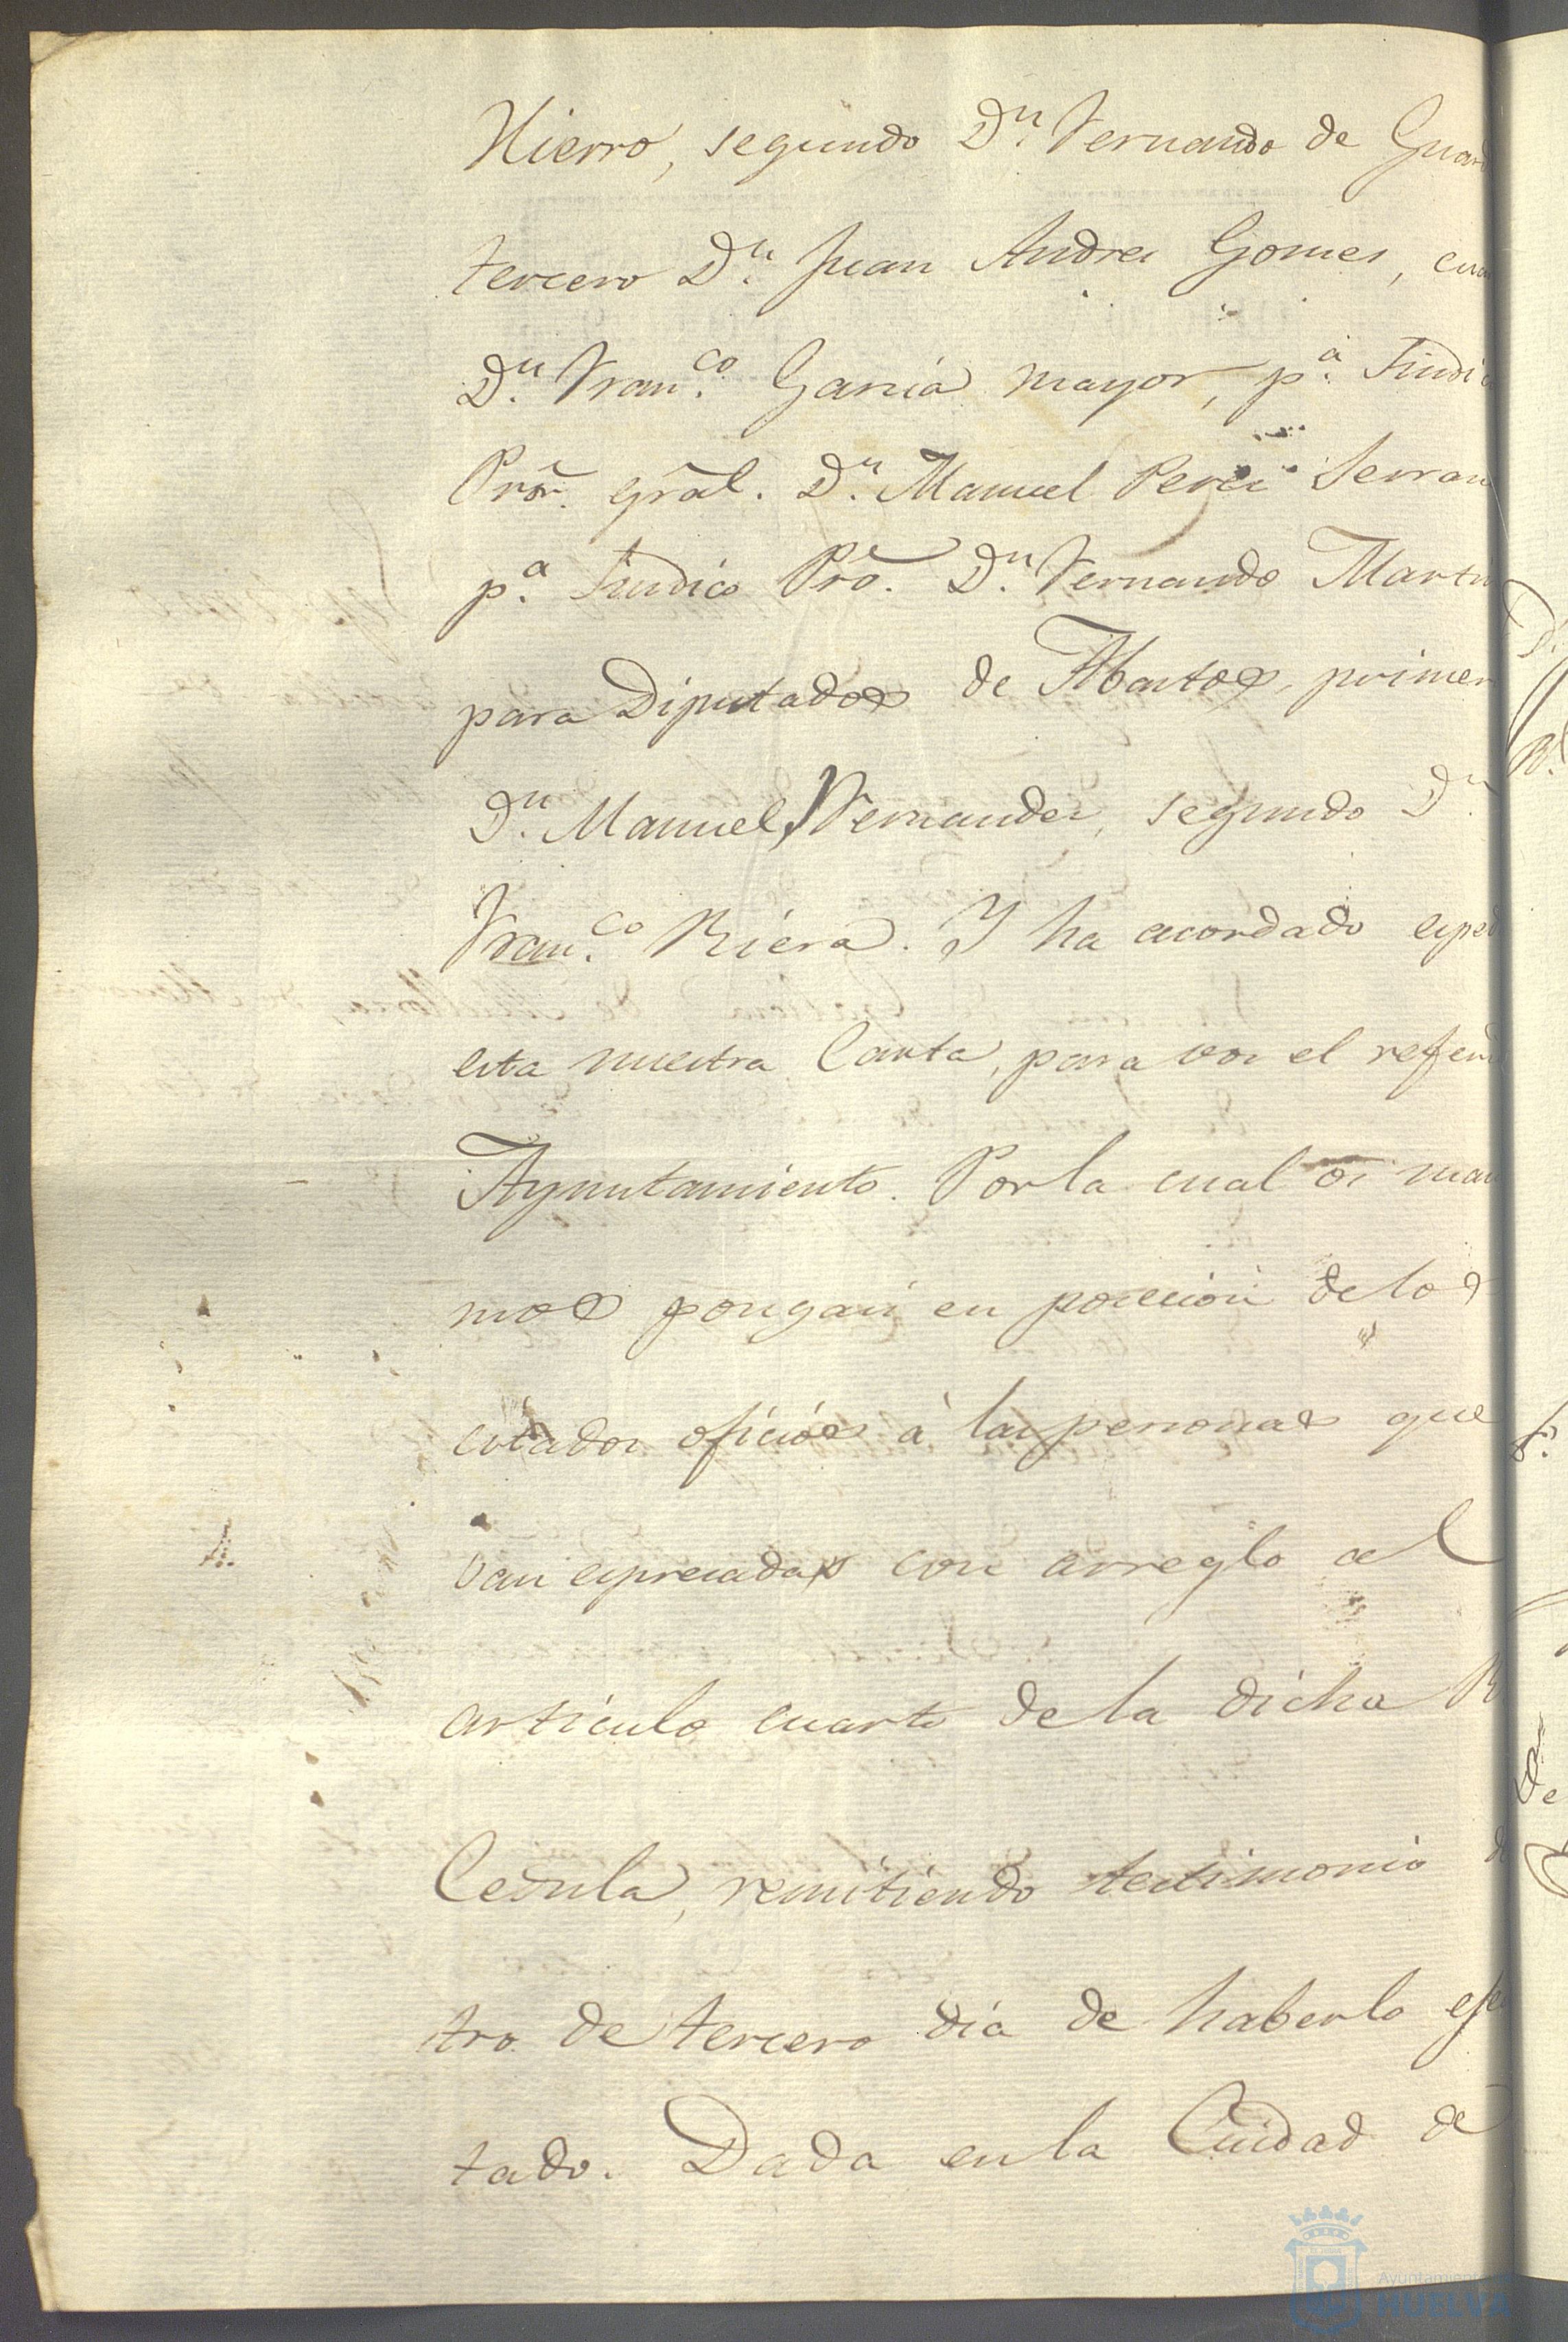 Hierro, segundo Dn. Fernando de Guar
tercero Dn. Juan Andres Gomes, cua
Dn. Franco. Garcia mayor, pa. Sindi
Pror. gral. Dn. Manuel Perez Serran
pa. Sindico Pro. Dn. Fernando Marti
para Diputados de Abastos, primer
Dn. Manuel Fernandez, segundo Dn
Franco. Riera. Y ha acordado espe
esta nuestra Carta, para vos el referi
Ayuntamiento. Por la cual os man
mos pongais en posecion de los
citados oficios à las personas que
van espresadas con arreglo al
articulo cuarto de la dicha R
Cedula, remitiendo testimonio d
tro de tercero dia de haberlo efec
tado. Dada en la Ciudad de
Ayuntamient
HUELVA